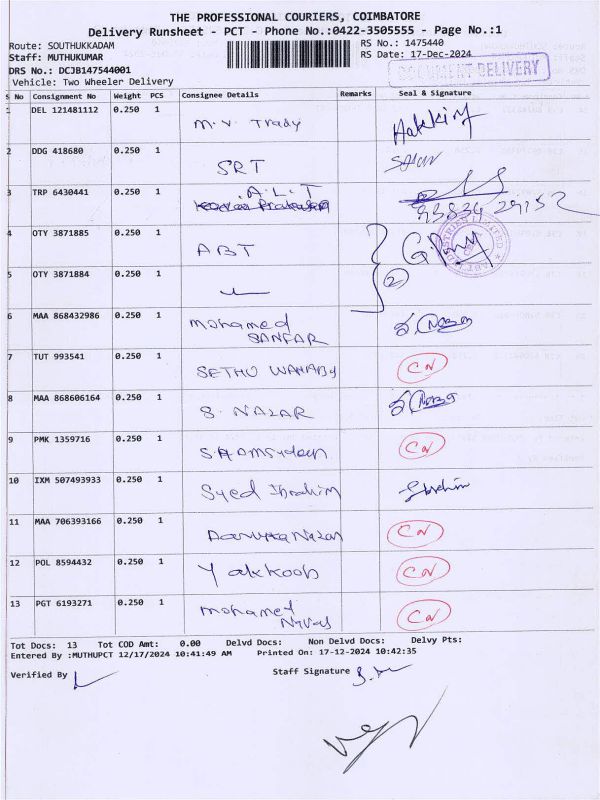 THE PROFESSIONAL COURIERS, COIMBATORE
Delivery Runsheet - PCT - Phone No.:0422-3505555 - Page No.:1
Route: SOUTHUKKADAM
RS No.: 1475440
Staff: MUTHUKUMAR
RS Date: 17-Dec-2024
DRS No.: DCJB147544001
DOCUMENT DELIVERY
Vehicle: Two Wheeler Delivery
S No Consignment No Weight PCS Consignee Details Remarks Seal & Signature
1 DEL 121481112 0.250 1 M.Y. Trady Hakkim
2 DDG 418680 0.250 1 SRT
3 TRP 6430441 0.250 1 A.L.T
93834 29152
4 OTY 3871885 0.250 1 ABT
5 OTY 3871884 0.250 1 2
6 MAA 868432986 0.250 1 Mohamed
SANFAR
7 TUT 993541 0.250 1 SETHU WAHABU CN
8 MAA 868606164 0.250 1 S. NAZAR
9 PMK 1359716 0.250 1 CN
10 IXM 507493933 0.250 1 Syed Ibrahim Ibrahim
11 MAA 706393166 0.250 1 CN
12 POL 8594432 0.250 1 Yakkoob CN
13 PGT 6193271 0.250 1 Mohamed CN
Navas
Tot Docs: 13 Tot COD Amt: 0.00 Delvd Docs: Non Delvd Docs: Delvy Pts:
Entered By :MUTHUPCT 12/17/2024 10:41:49 AM Printed On: 17-12-2024 10:42:35
Verified By Staff Signature